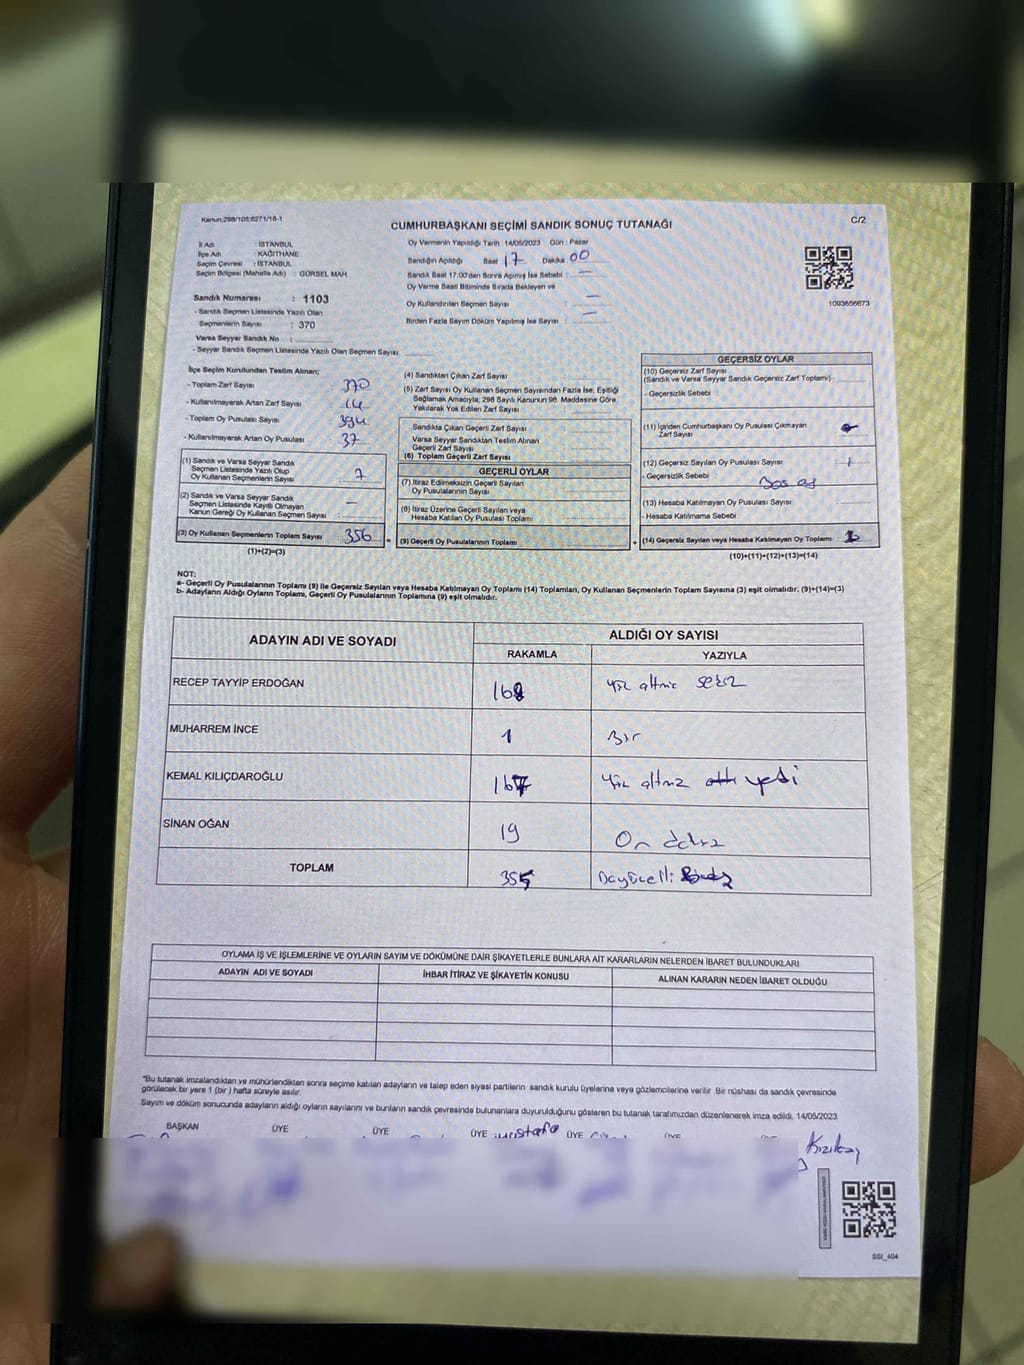 Kanun;298/105;6271/18-1
C/2
CUMHURBAŞKANI SEÇİMİ SANDIK SONUÇ TUTANAĞI
İl Adı : İSTANBUL
İlçe Adı : KAĞITHANE
Seçim Çevresi : İSTANBUL
Seçim Bölgesi (Mahalle Adı) : GÜRSEL MAH.
Sandık Numarası : 1103
- Sandık Seçmen Listesinde Yazılı Olan
Seçmenlerin Sayısı : 370
Varsa Seyyar Sandık No :
- Seyyar Sandık Seçmen Listesinde Yazılı Olan Seçmen Sayısı:
Oy Vermenin Yapıldığı Tarih : 14/05/2023 Gün : Pazar
Sandığın Açıldığı Saat 17 Dakika 00
Sandık Saat 17:00'den Sonra Açılmış İse Sebebi : —
Oy Verme Saati Bitiminde Sırada Bekleyen ve
Oy Kullandırılan Seçmen Sayısı : —
Birden Fazla Sayım Döküm Yapılmış İse Sayısı : —
1093656673
İlçe Seçim Kurulundan Teslim Alınan;
- Toplam Zarf Sayısı : 370
- Kullanılmayarak Artan Zarf Sayısı : 14
- Toplam Oy Pusulası Sayısı : 394
- Kullanılmayarak Artan Oy Pusulası : 37
(1) Sandık ve Varsa Seyyar Sandık
Seçmen Listesinde Yazılı Olup
Oy Kullanan Seçmenlerin Sayısı :
(2) Sandık ve Varsa Seyyar Sandık
Seçmen Listesinde Kayıtlı Olmayan
Kanun Gereği Oy Kullanan Seçmen Sayısı : —
(3) Oy Kullanan Seçmenlerin Toplam Sayısı : 356
(1)+(2)=(3)
=
(4) Sandıktan Çıkan Zarf Sayısı :
(5) Zarf Sayısı Oy Kullanan Seçmen Sayısından Fazla İse, Eşitliği
Sağlamak Amacıyla, 298 Sayılı Kanunun 98. Maddesine Göre
Yakılarak Yok Edilen Zarf Sayısı :
Sandıkta Çıkan Geçerli Zarf Sayısı :
Varsa Seyyar Sandıktan Teslim Alınan
Geçerli Zarf Sayısı :
(6) Toplam Geçerli Zarf Sayısı :
GEÇERLİ OYLAR
(7) İtiraz Edilmeksizin Geçerli Sayılan
Oy Pusulalarının Sayısı :
(8) İtiraz Üzerine Geçerli Sayılan veya
Hesaba Katılan Oy Pusulası Toplamı :
(9) Geçerli Oy Pusulalarının Toplamı :
+
GEÇERSİZ OYLAR
(10) Geçersiz Zarf Sayısı
(Sandık ve Varsa Seyyar Sandık Geçersiz Zarf Toplamı) :
- Geçersizlik Sebebi :
(11) İçinden Cumhurbaşkanı Oy Pusulası Çıkmayan
Zarf Sayısı :
(12) Geçersiz Sayılan Oy Pusulası Sayısı : 1
- Geçersizlik Sebebi : Boş oy
(13) Hesaba Katılmayan Oy Pusulası Sayısı :
- Hesaba Katılmama Sebebi :
(14) Geçersiz Sayılan veya Hesaba Katılmayan Oy Toplamı : 1
(10)+(11)+(12)+(13)=(14)
NOT:
a- Geçerli Oy Pusulalarının Toplamı (9) ile Geçersiz Sayılan veya Hesaba Katılmayan Oy Toplamı (14) Toplamları, Oy Kullanan Seçmenlerin Toplam Sayısına (3) eşit olmalıdır. (9)+(14)=(3)
b- Adayların Aldığı Oyların Toplamı, Geçerli Oy Pusulalarının Toplamına (9) eşit olmalıdır.
ADAYIN ADI VE SOYADI ALDIĞI OY SAYISI
RAKAMLA YAZIYLA
RECEP TAYYİP ERDOĞAN 168 yüz altmış sekiz
MUHARREM İNCE 1 Bir
KEMAL KILIÇDAROĞLU 167 yüz altmış altı yedi
SİNAN OĞAN 19 On dokuz
TOPLAM 355
OYLAMA İŞ VE İŞLEMLERİNE VE OYLARIN SAYIM VE DÖKÜMÜNE DAİR ŞİKAYETLERLE BUNLARA AİT KARARLARIN NELERDEN İBARET BULUNDUKLARI
ADAYIN ADI VE SOYADI İHBAR İTİRAZ VE ŞİKAYETİN KONUSU ALINAN KARARIN NEDEN İBARET OLDUĞU
*Bu tutanak imzalandıktan ve mühürlendikten sonra seçime katılan adayların ve talep eden siyasi partilerin sandık kurulu üyelerine veya gözlemcilerine verilir. Bir nüshası da sandık çevresinde
görülecek bir yere 1 (bir) hafta süreyle asılır.
Sayım ve döküm sonucunda adayların aldığı oyların sayılarını ve bunların sandık çevresinde bulunanlara duyurulduğunu gösteren bu tutanak tarafımızdan düzenlenerek imza edildi. 14/05/2023
BAŞKAN ÜYE ÜYE ÜYE Mustafa ÜYE ÜYE
Kızılay
SSI_404